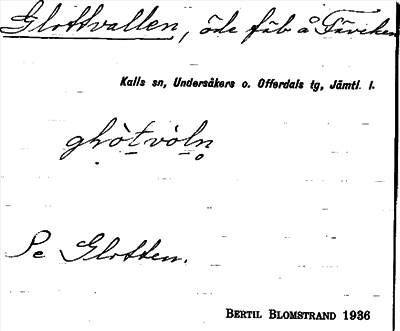 Glottvallen, öde fäb å Täveken
Kalls sn, Undersåkers o. Offerdals tg, Jämtl. l.
ghòtvòln
Se Glotten.
BERTIL BLOMSTRAND 1936